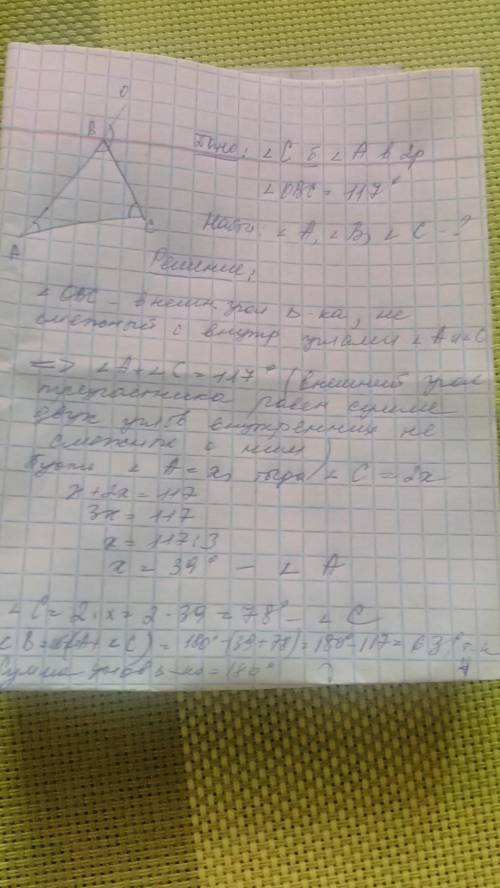 O
B
Дано: ∠C б ∠A в 2р
∠OBC = 117°
C
Найти ∠A, ∠B, ∠C - ?
A
Решение:
∠OBC - внешн. угол Δ-ка, не
смежный с внутр углами ∠A и ∠C
=> ∠A + ∠C = 117° (внешний угол
треугольника равен сумме
двух углов внутренних не
смежных с ним)
Пусть ∠A = x, тогда ∠C = 2x
x + 2x = 117
3x = 117
x = 117:3
x = 39° - ∠A
∠C = 2·x = 2·39 = 78° - ∠C
∠B = (∠A + ∠C) = 180° - (39 + 78) = 180° - 117 = 63° (т.к
Сумма углов Δ-ка = 180°)